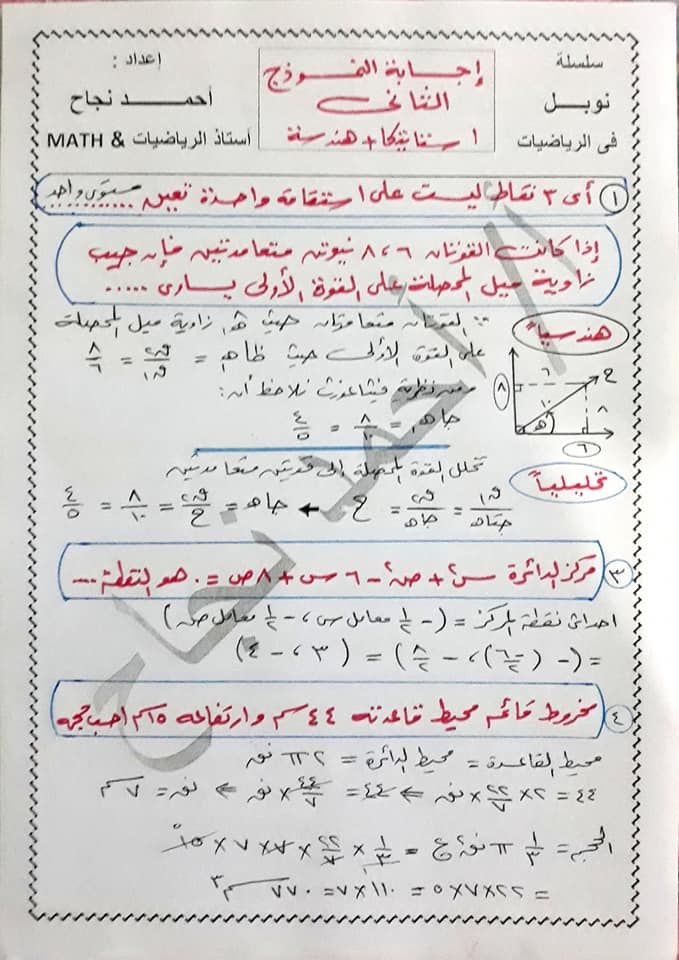 سلسلة
نوبل
فى الرياضيات
إجابة النموذج
الثانى
استاتيكا + هندسة
إعداد :
أحمد نجاح
أستاذ الرياضيات & MATH
١ أى ٣ نقاط ليست على استقامة واحدة تعين مستوى واحد
إذا كانت القوتان ٦ ، ٨ نيوتن متعامدتين فإن جيب
زاوية ميل المحصلة على القوة الأولى يساوى .....
هندسياً
∵ القوتان متعامدتان حيث هـ زاوية ميل المحصلة
على القوة الأولى حيث ظاهـ = ق٢/ق١ = ٨/٦
ومن نظرية فيثاغورث نلاحظ أن:
جاهـ = ٨/١٠ = ٤/٥
٨ ٦ ١٠ ح ٨ هـ ٦
تحليلياً
تحلل القوة المحصلة إلى قوتين متعامدتين
ق١/جتاهـ = ق٢/جاهـ = ح ← جاهـ = ق٢/ح = ٨/١٠ = ٤/٥
٣ مركز الدائرة س٢ + ص٢ - ٦ س + ٨ ص = ٠ هو النقطة ...
احداثى نقطة المركز = (- ١/٢ معامل س ، - ١/٢ معامل ص)
= (- (-٦/٢) ، - ٨/٢) = (٣ ، - ٤)
٤ مخروط قائم محيط قاعدته ٤٤ سم وارتفاعه ١٥ سم احسب حجمه
محيط القاعدة = محيط الدائرة = ٢ π نق
٤٤ = ٢ × ٢٢/٧ × نق ⇐ ٤٤ = ٤٤/٧ × نق ⇐ نق = ٧ سم
الحجم = ١/٣ π نق٢ ع = ١/٣ × ٢٢/٧ × ٧ × ٧ × ١٥ ٥
= ٢٢ × ٧ × ٥ = ١١٠ × ٧ = ٧٧٠ سم٣
أ/ أحمد نجاح